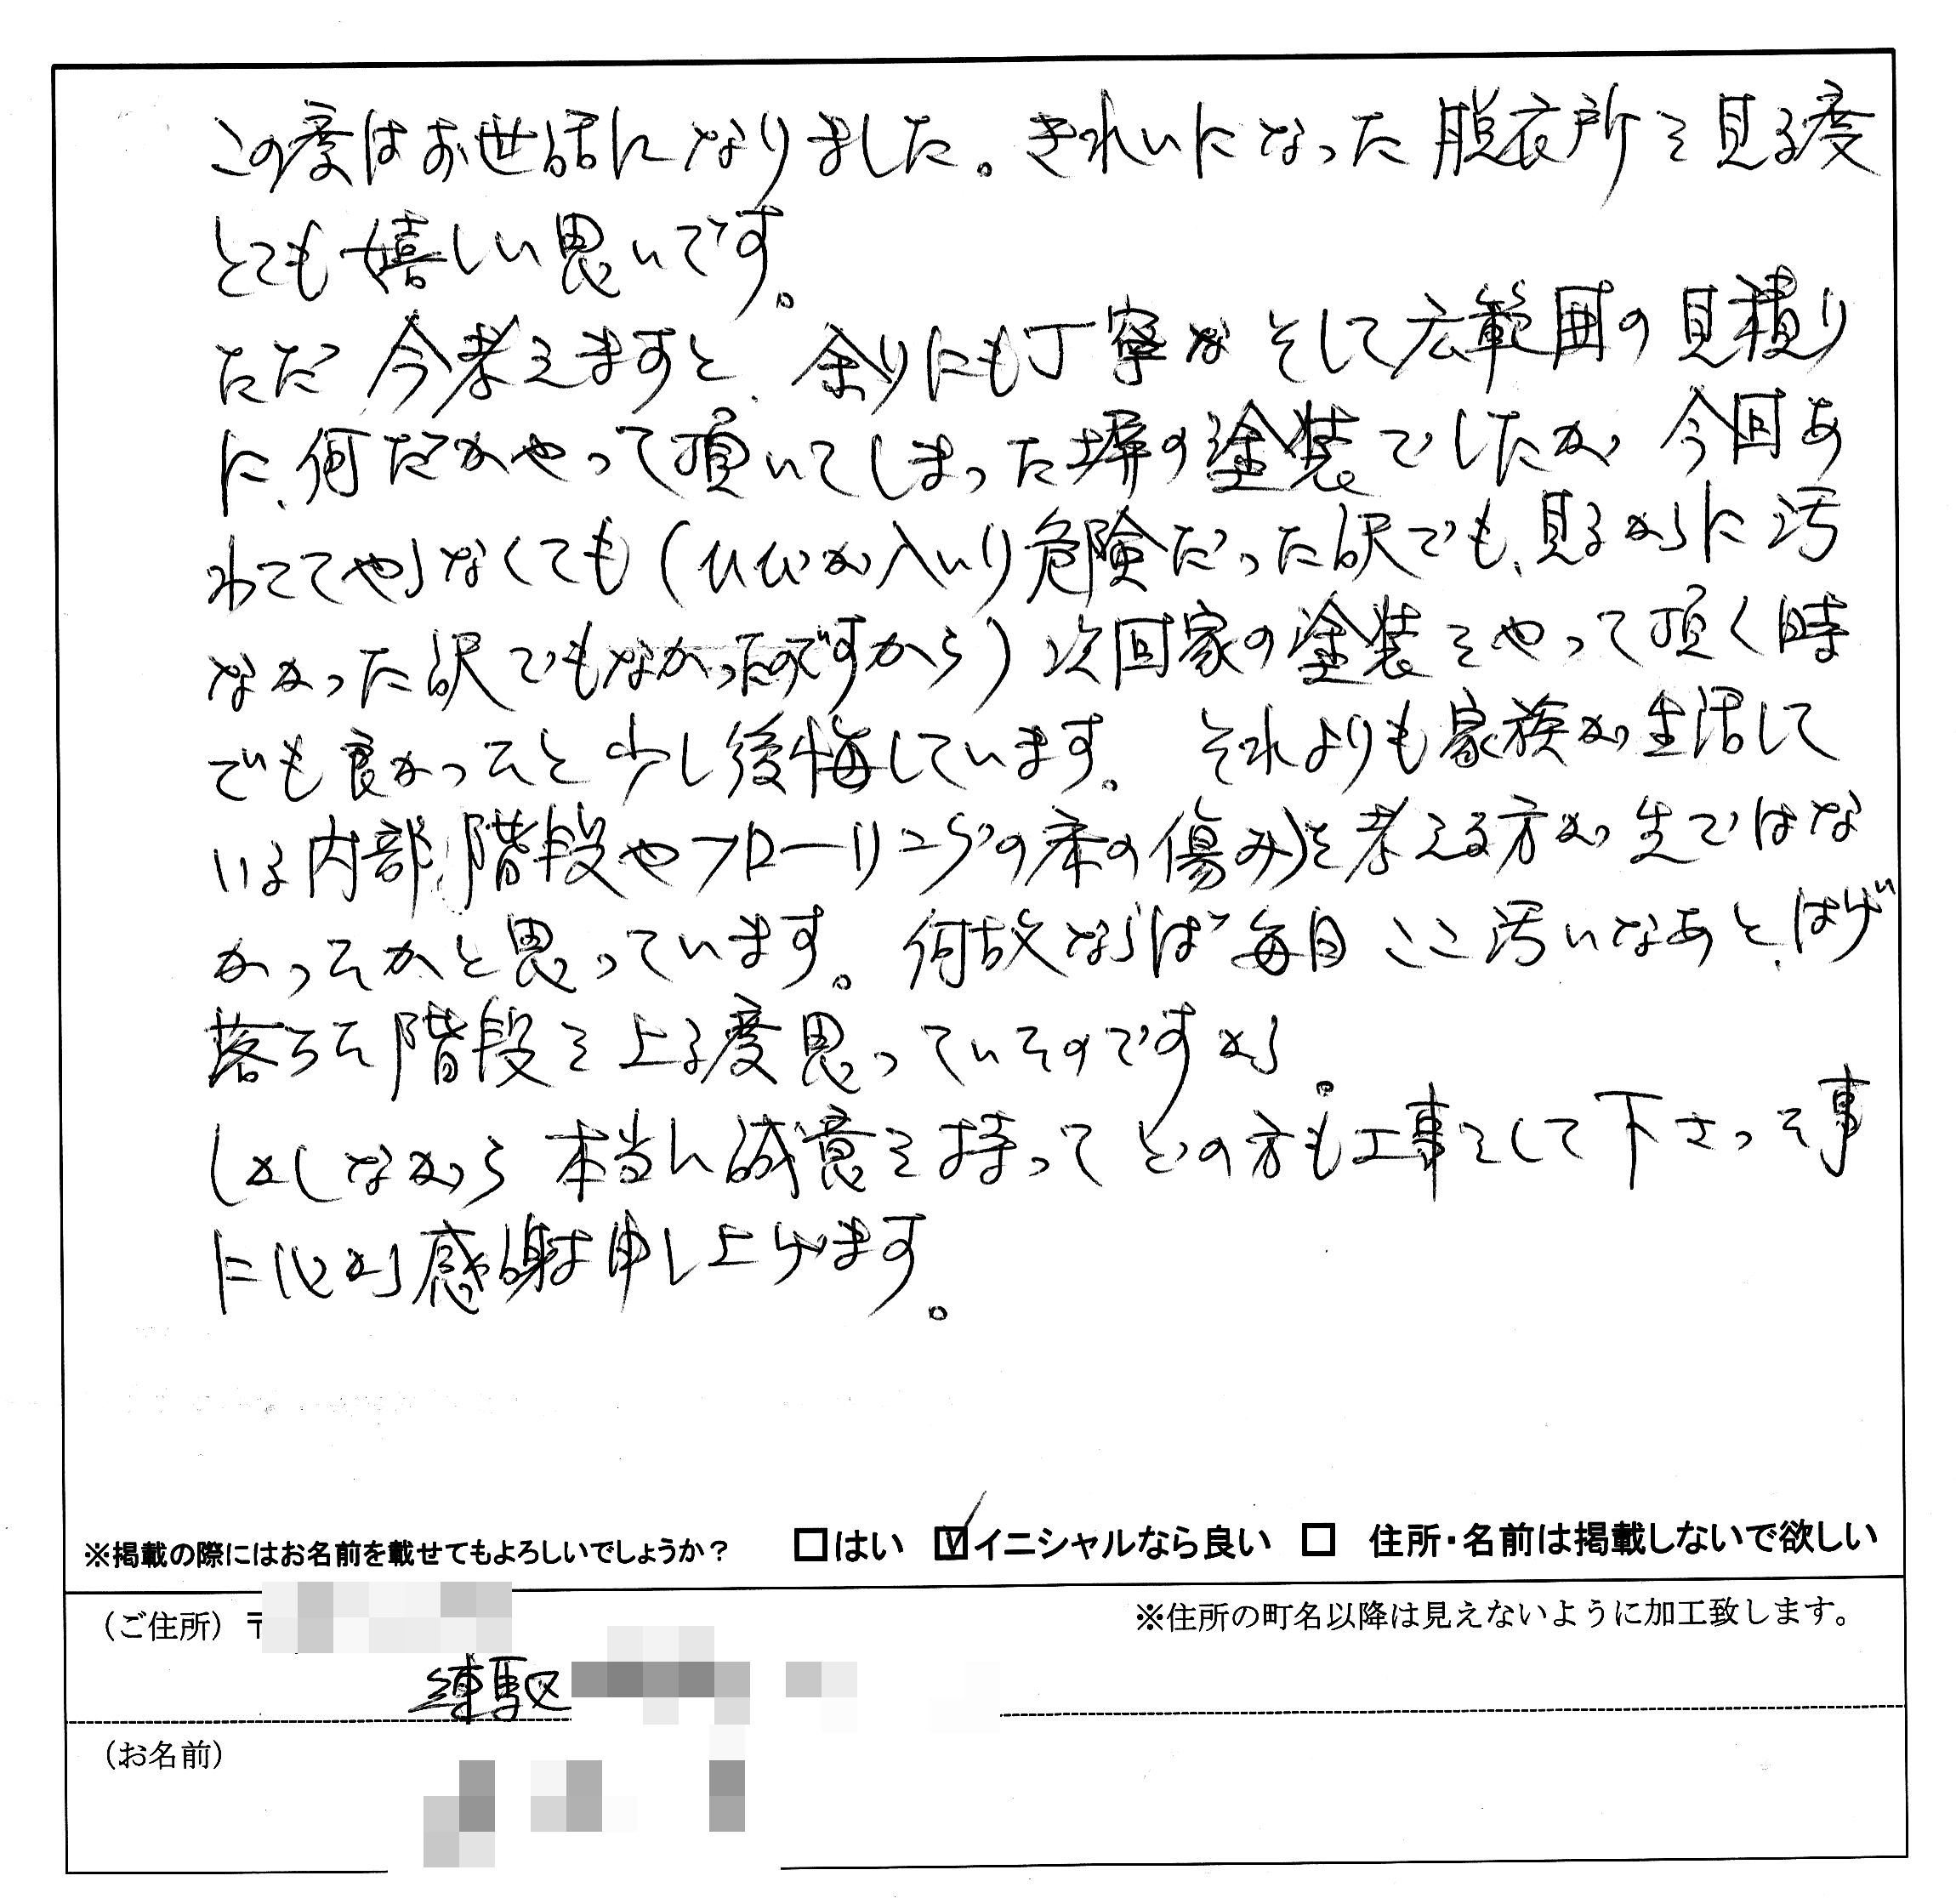 この度はお世話になりました。きれいになった脱衣所を見る度
とても嬉しい思いです。
ただ今考えますと、余りにも丁寧なそして広範囲の見積り
に、何だかやって頂いてしまった塀の塗装でしたが今回あ
わててやらなくても(ひびが入いり危険だった訳でも、見るからに汚
なかった訳でもなかったのですから)次回家の塗装をやって頂く時
でも良かったと少し後悔しています。それよりも家族が生活して
いる内部(階段やフローリングの床の傷み)を考える方が先ではな
かったかと思っています。何故ならば毎日ここ汚いなあと、はげ
落ちた階段を上る度思っていたのですから。
しかしながら本当に誠意を持ってどの方も工事をして下さった事
に心から感謝申し上げます。
※掲載の際にはお名前を載せてもよろしいでしょうか? □はい ☑イニシャルなら良い □ 住所・名前は掲載しないで欲しい
(ご住所)〒 ※住所の町名以降は見えないように加工致します。
練馬区
(お名前)